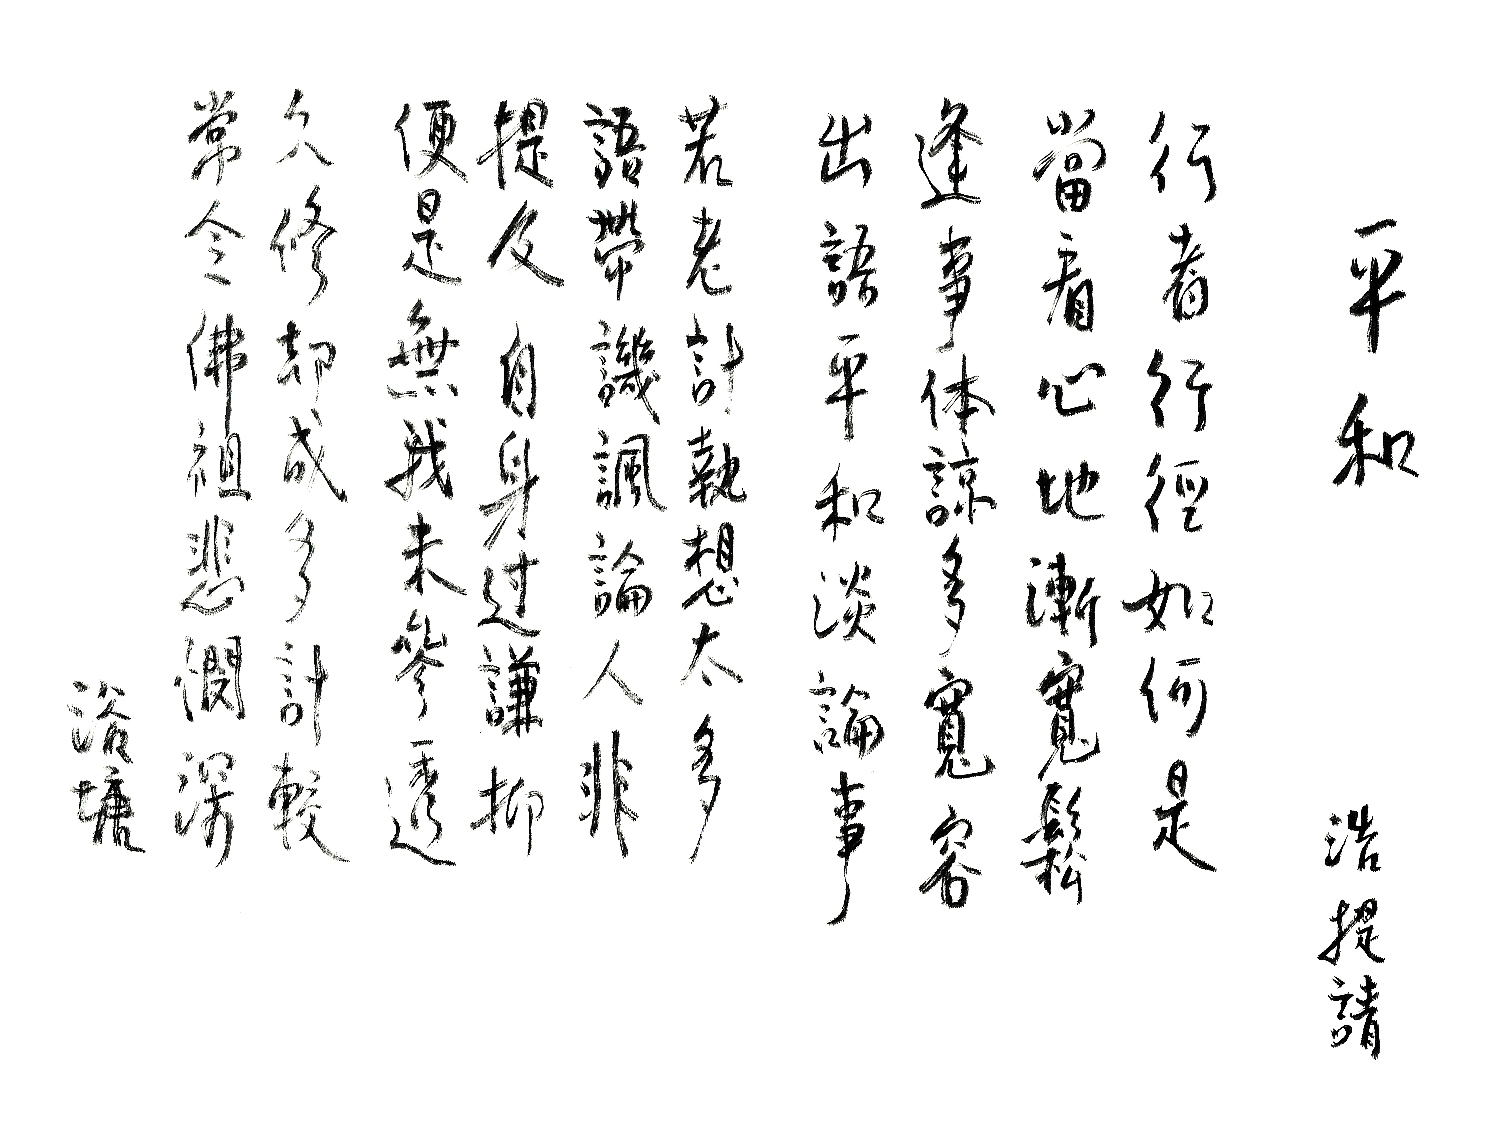 平和
浩提請
行者行徑如何是
當看心地漸寬鬆
逢事体諒多寬容
出語平和淡論事
若老計執想太多
語帶譏諷論人非
提及自身过謙抑
便是無我未參透
久修却成多計較
常令佛祖悲憫深
浴塘